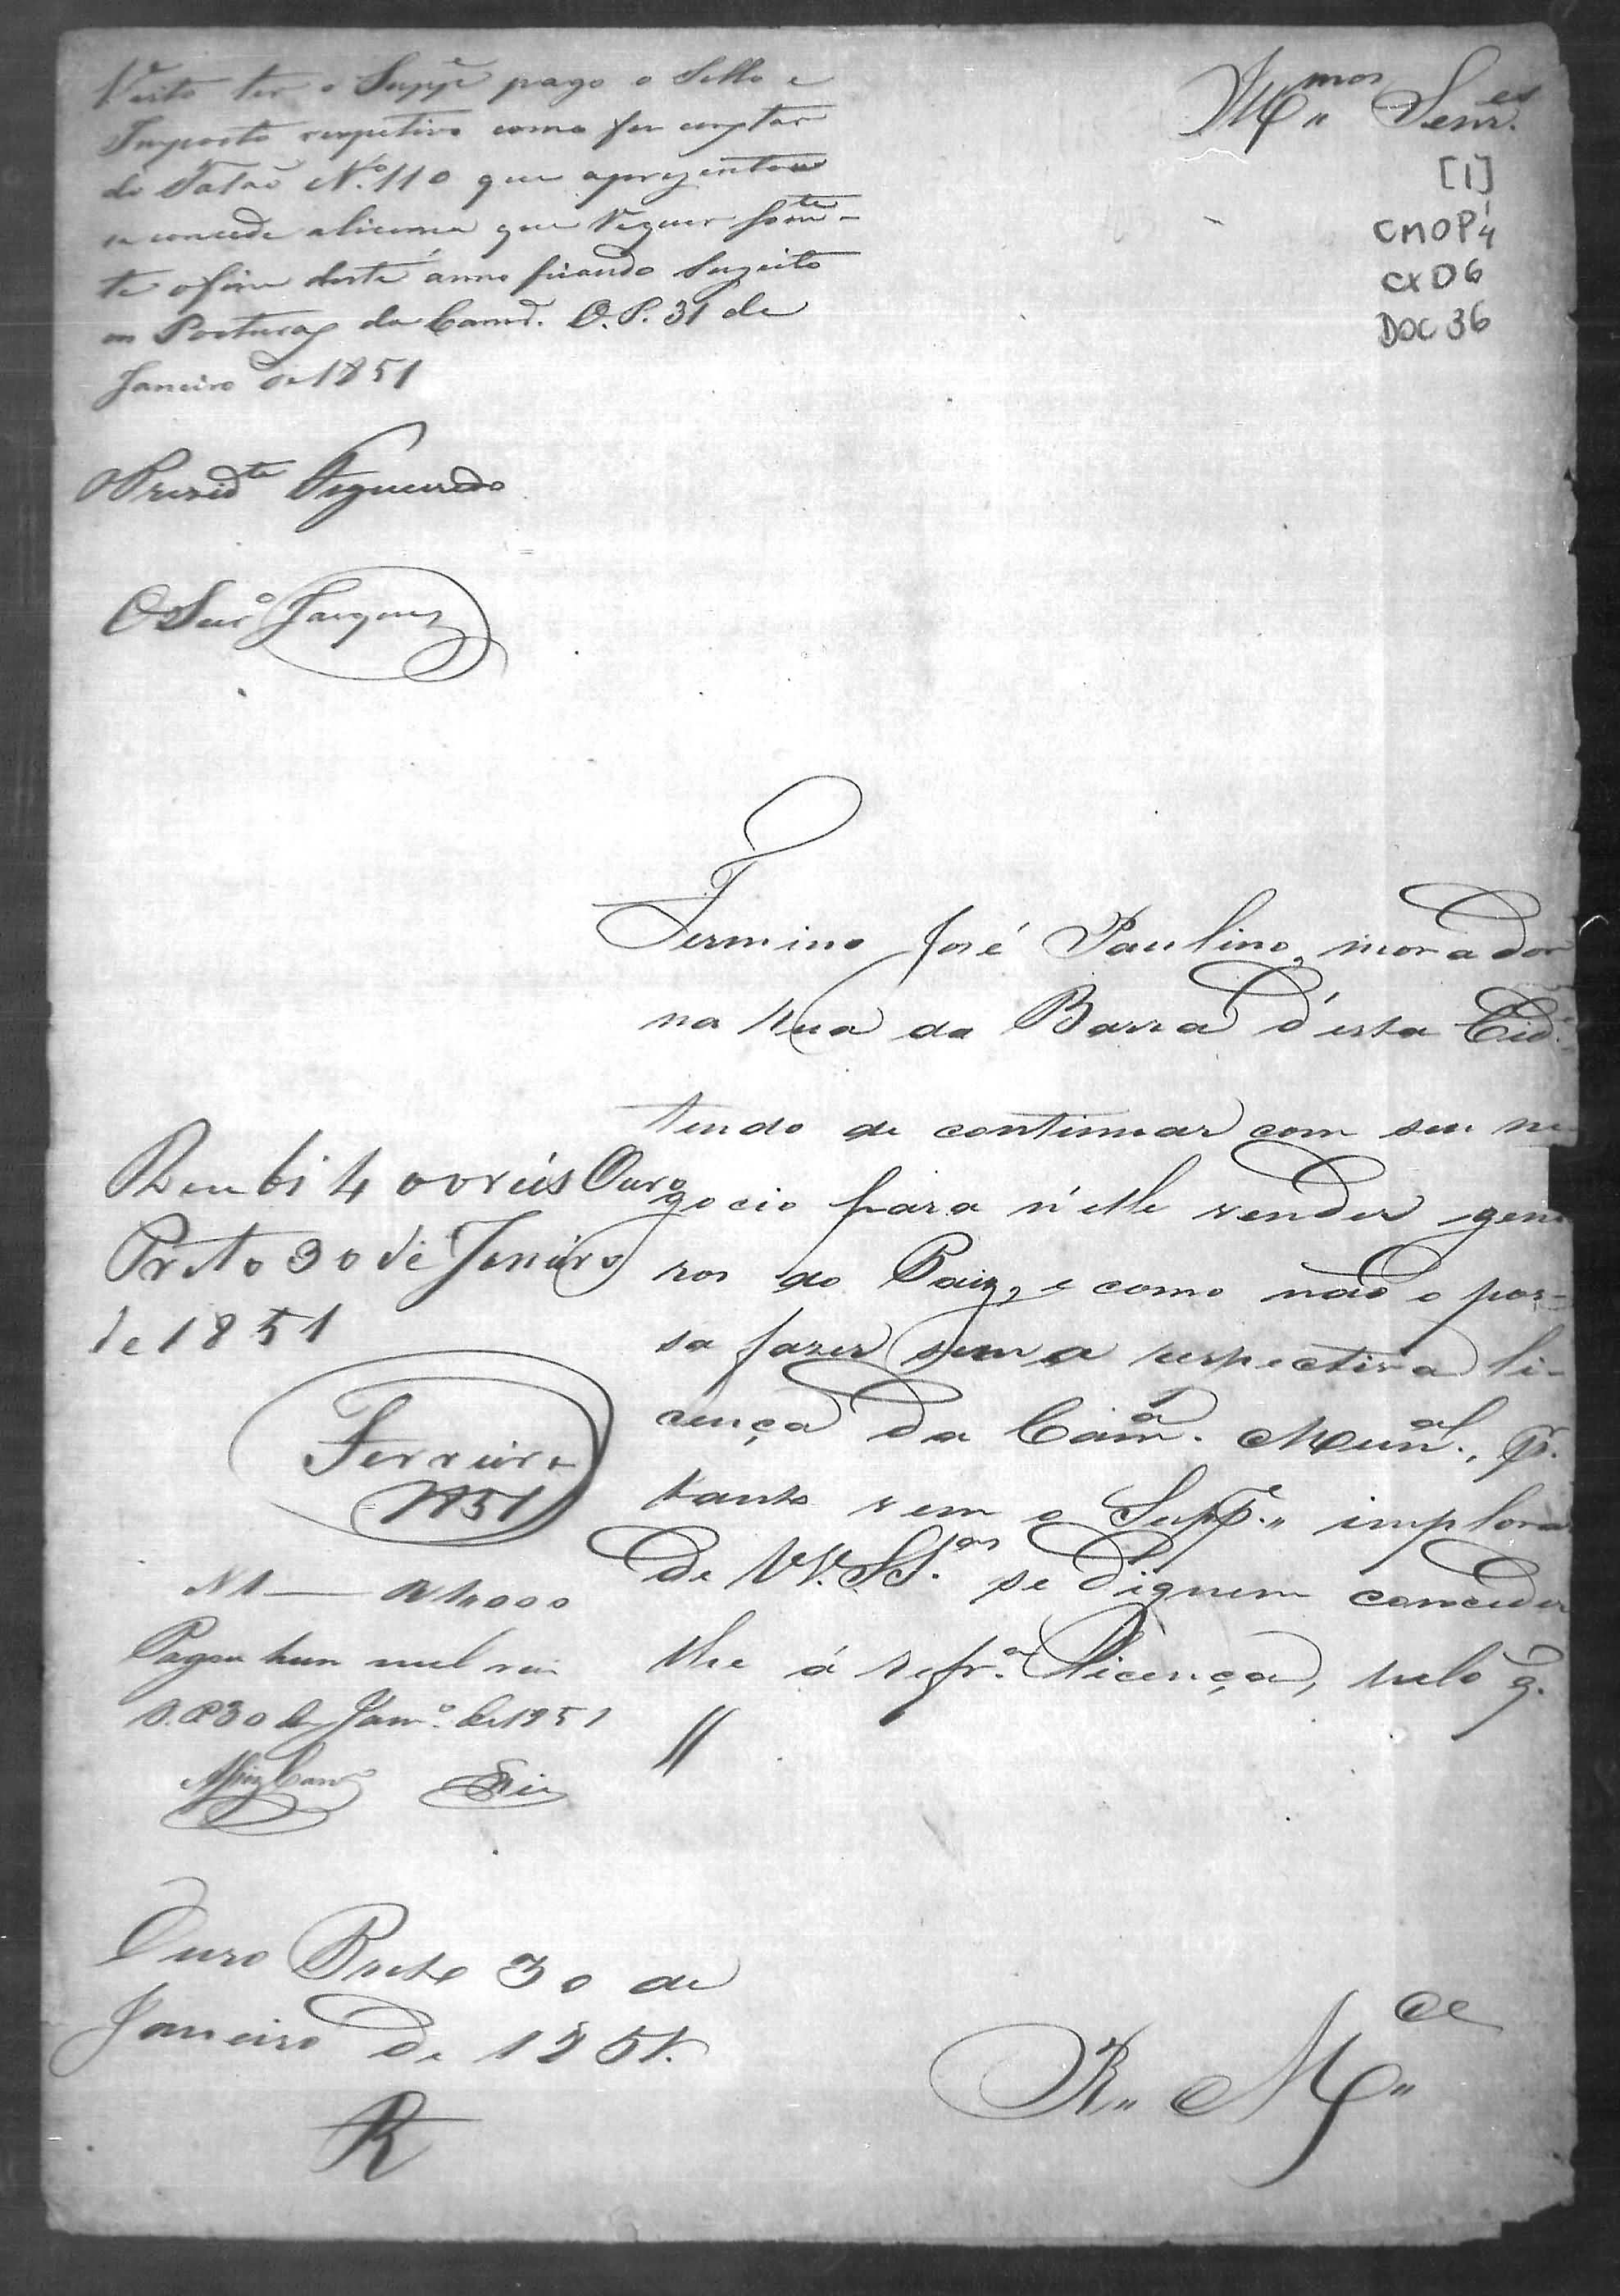 Visto ter o Supp.e pago o Sello e
Imposto respetivo como fes constar
do Talaõ N.º 110 que aprezentou
se concede alicença que requer som.te
te ofim deste anno ficando sugeito
as Posturas da Camr.ª O. P. 31 de
Janeiro de 1851
O Prezid.te Figueiredo
O Secr.º Jacques
Ill.mos Senr.es
[1]
CMOP 4
CX 06
DOC 36
Fermino José Paulino, morador
na Rua da Barra d'esta Cid.e
tendo de continuar com seu ne
gocio para n'elle vender gene
ros do Paiz, e como não o pos-
sa fazer sem a respectiva li-
cença da Cam.ª Mun.al, p.r
tanto vem o Supp.e implorar
de VV. SS.as se dignem conceder
lhe á refr.ª licença, pelo q.
Recebi 400 reis Ouro
Preto 30 de Janeiro
de 1851
Ferreira
1851
N 1 — R 1,000
Pagou hum mil reis
O. P 30 de Jan.º de 1851
Ouro Preto 30 de
Janeiro de 1851.
R
R.. M.ce